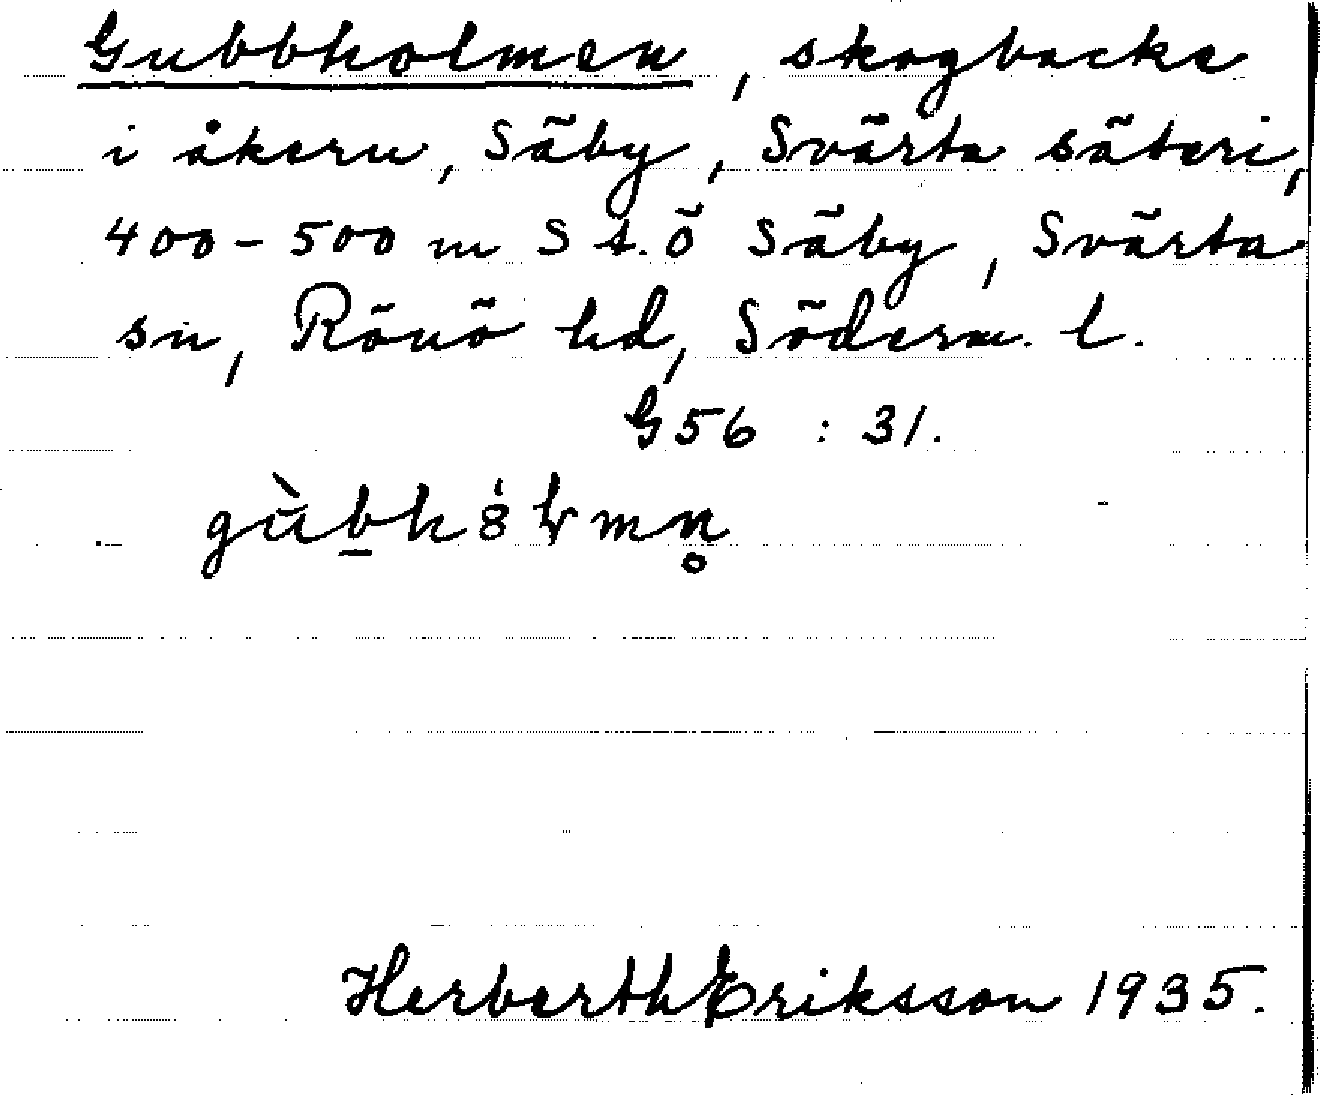 Gubbholmen, skogbacke
i åkern, Säby, Svärta säteri,
400-500 m S t. Ö Säby, Svärta
sn, Rönö hd, Söderm. l.
G56 : 31.
Herberth Eriksson 1935.